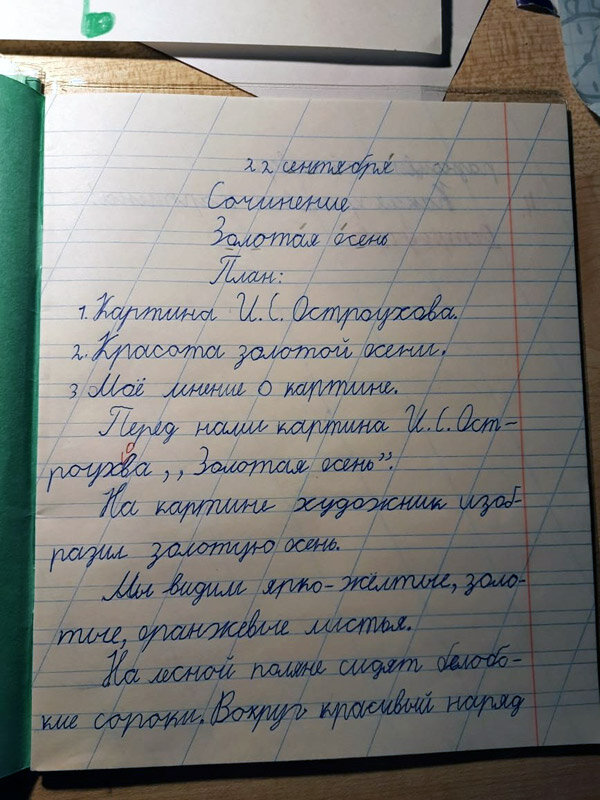 22 сентября
Сочинение
Золотая осень
План:
1. Картина И.С. Остроухова.
2. Красота золотой осени.
3 Моё мнение о картине.
Перед нами картина И.С. Ост-
роухова ,,Золотая осень".
На картине художник изоб-
разил золотую осень.
Мы видим ярко-жёлтые, золо-
тые, оранжевые листья.
На лесной поляне сидят белобо-
кие сороки. Вокруг красивый наряд